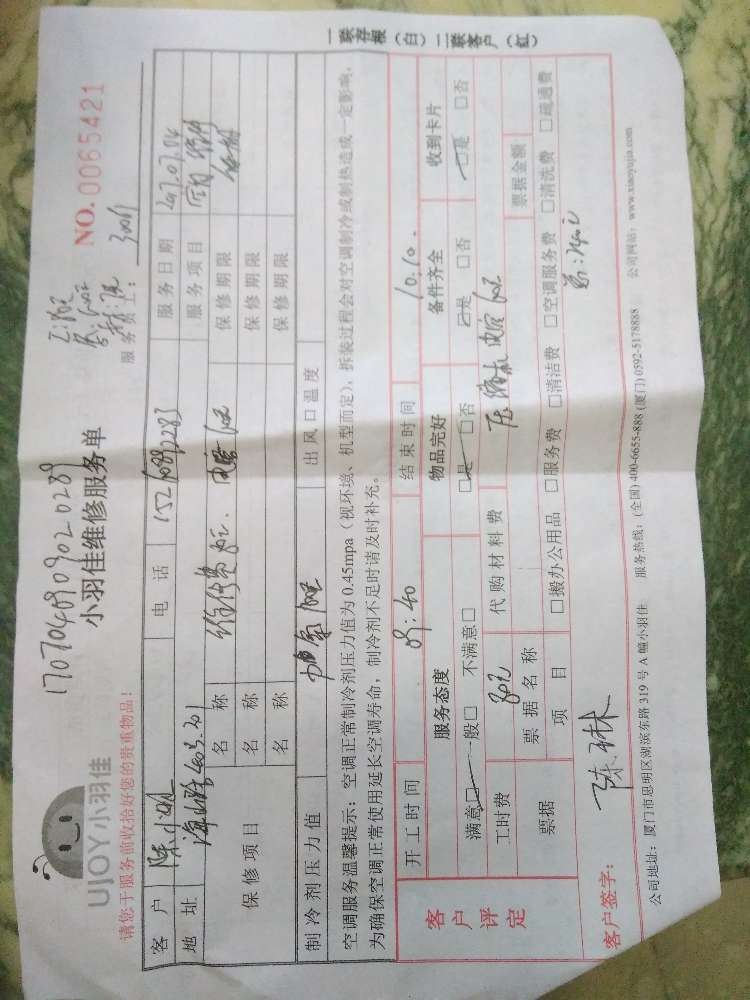 UJOY小羽佳
1707040909020289
小羽佳维修服务单
NO. 0065421
请您于服务前收拾好您的贵重物品!
服务员工: 30011
客户 电话 服务日期
地址 服务项目
保修项目 名称 保修期限
名称 保修期限
名称 保修期限
制冷剂压力值 出风口温度
空调服务温馨提示:空调正常制冷剂压力值为0.45mpa(视环境、机型而定),拆装过程会对空调制冷或制热造成一定影响,
为确保空调正常使用延长空调寿命,制冷剂不足时请及时补充。
开工时间 09:40 结束时间 10:10.
客户评定 服务态度 物品完好 备件齐全 收到卡片
满意□ 一般□ 不满意□ □是 □否 □是 □否 □是 □否
工时费 80元 代购材料费
票据 票据名称 票据金额
项目 □搬办公用品 □服务费 □清洁费 □空调服务费 □清洗费 □疏通费
客户签字:
公司地址:厦门市思明区湖滨东路319号A幢小羽佳 服务热线:(全国)400-6655-888 (厦门)0592-5178888 公司网站:www.xiaoyujia.com
一联存根(白)二联客户(红)